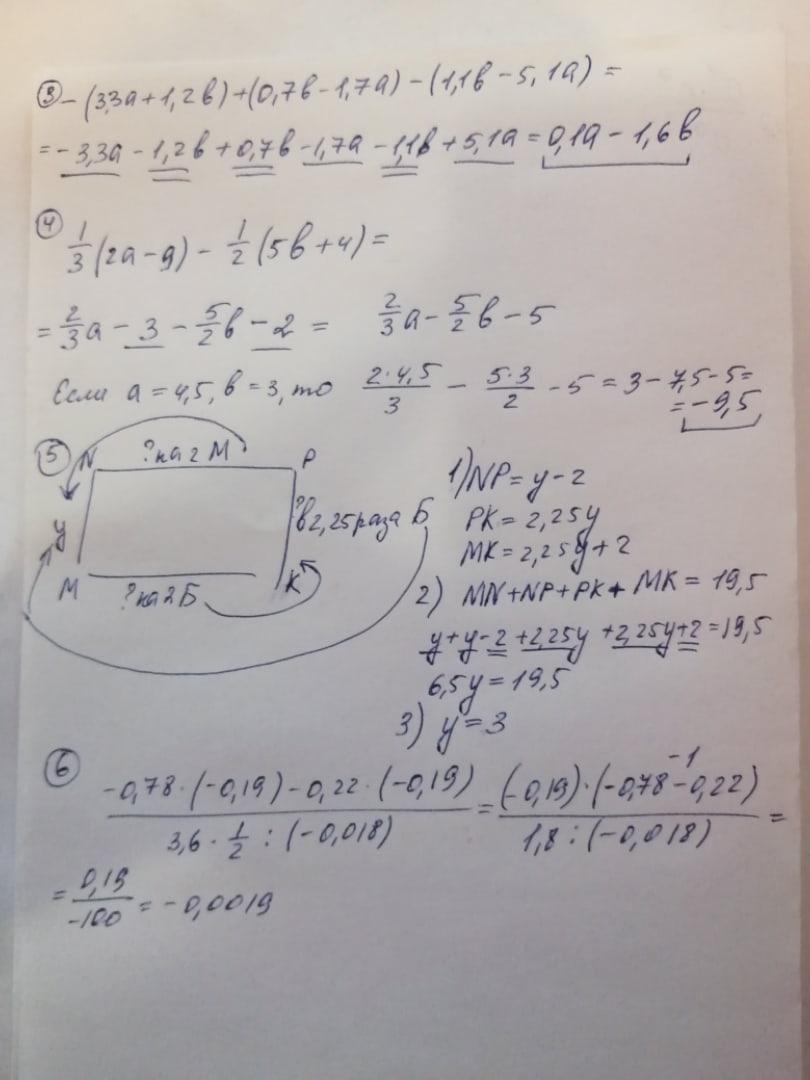 ③ -(3,3а+1,2в)+(0,7в-1,7а)-(1,1в-5,1а)=
=-3,3а-1,2в+0,7в-1,7а-1,1в+5,1а=0,1а-1,6в
④ 1/3(2а-9)-1/2(5в+4)=
=2/3а-3-5/2в-2= 2/3а-5/2в-5
Если а=4,5, в=3, то 2·4,5/3 - 5·3/2 -5=3-7,5-5=
=-9,5
⑤ N ?на 2 М P
y
?в 2,25 раза Б
M ?на 2 Б K
1) NP=y-2
PK=2,25y
MK=2,25y+2
2) MN+NP+PK+MK=19,5
y+y-2+2,25y+2,25y+2=19,5
6,5y=19,5
3) y=3
⑥ -0,78·(-0,19)-0,22·(-0,19)/3,6·1/2:(-0,018) = (-0,19)·(-0,78-0,22)/1,8:(-0,018) =
-1
=0,19/-100=-0,0019